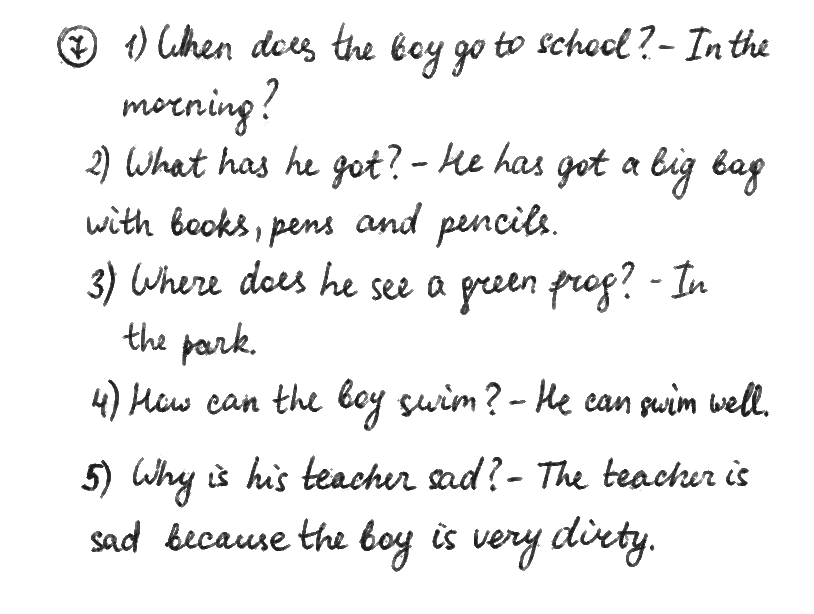 7 1) When does the boy go to school? – In the
morning?
2) What has he got? – He has got a big bag
with books, pens and pencils.
3) Where does he see a green frog? – In
the park.
4) How can the boy swim? – He can swim well.
5) Why is his teacher sad? – The teacher is
sad because the boy is very dirty.